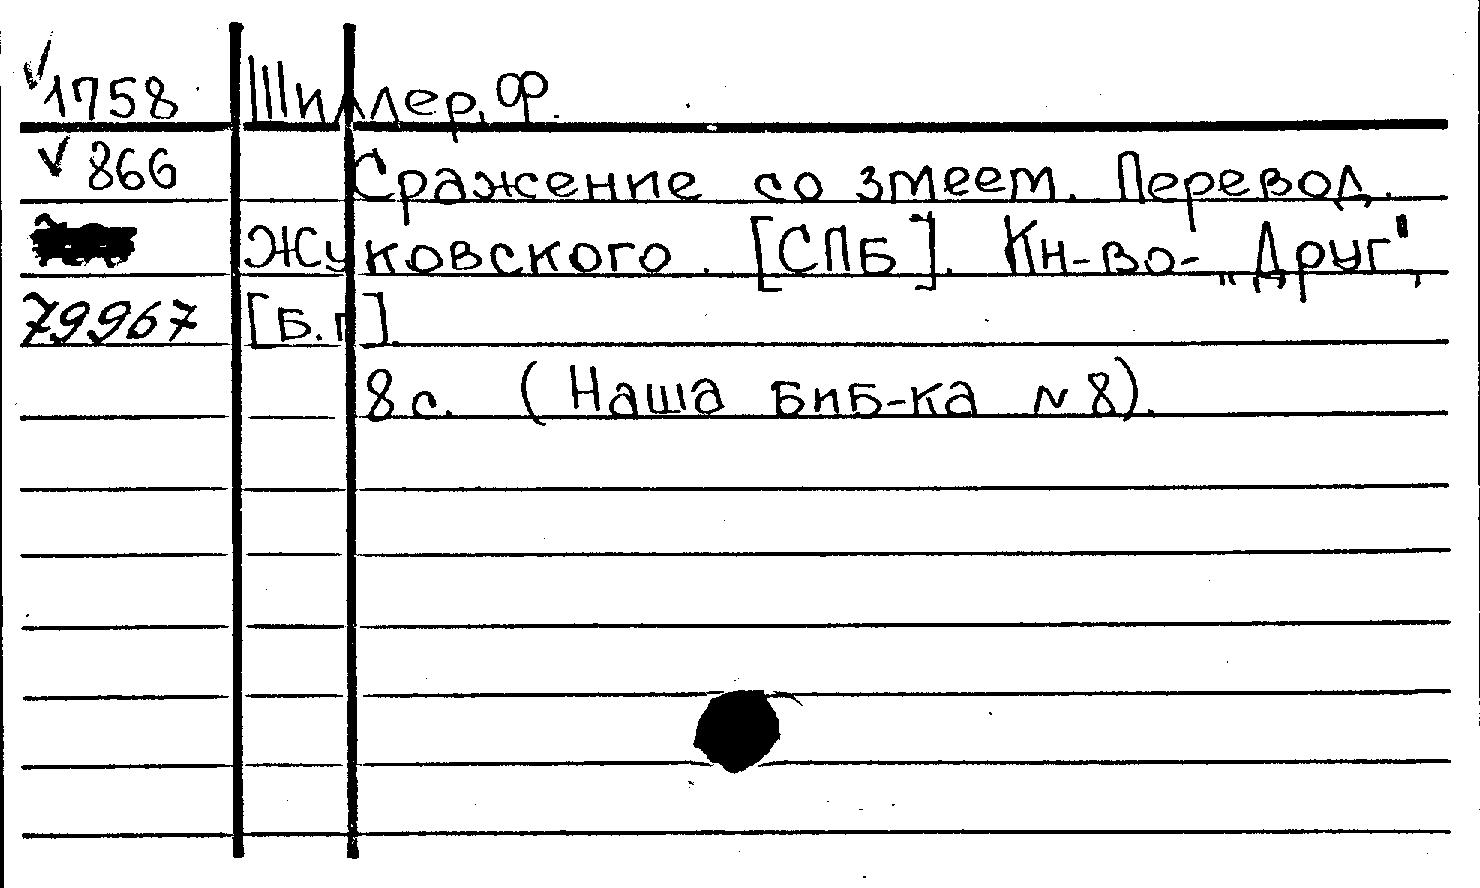 ✓1758 Шиллер, Ф.
✓ 866 Сражение со змеем. Перевод.
Жуковского. [СПБ]. Кн-во- „Друг",
79967 [Б.г].
8 с. (Наша биб-ка № 8).